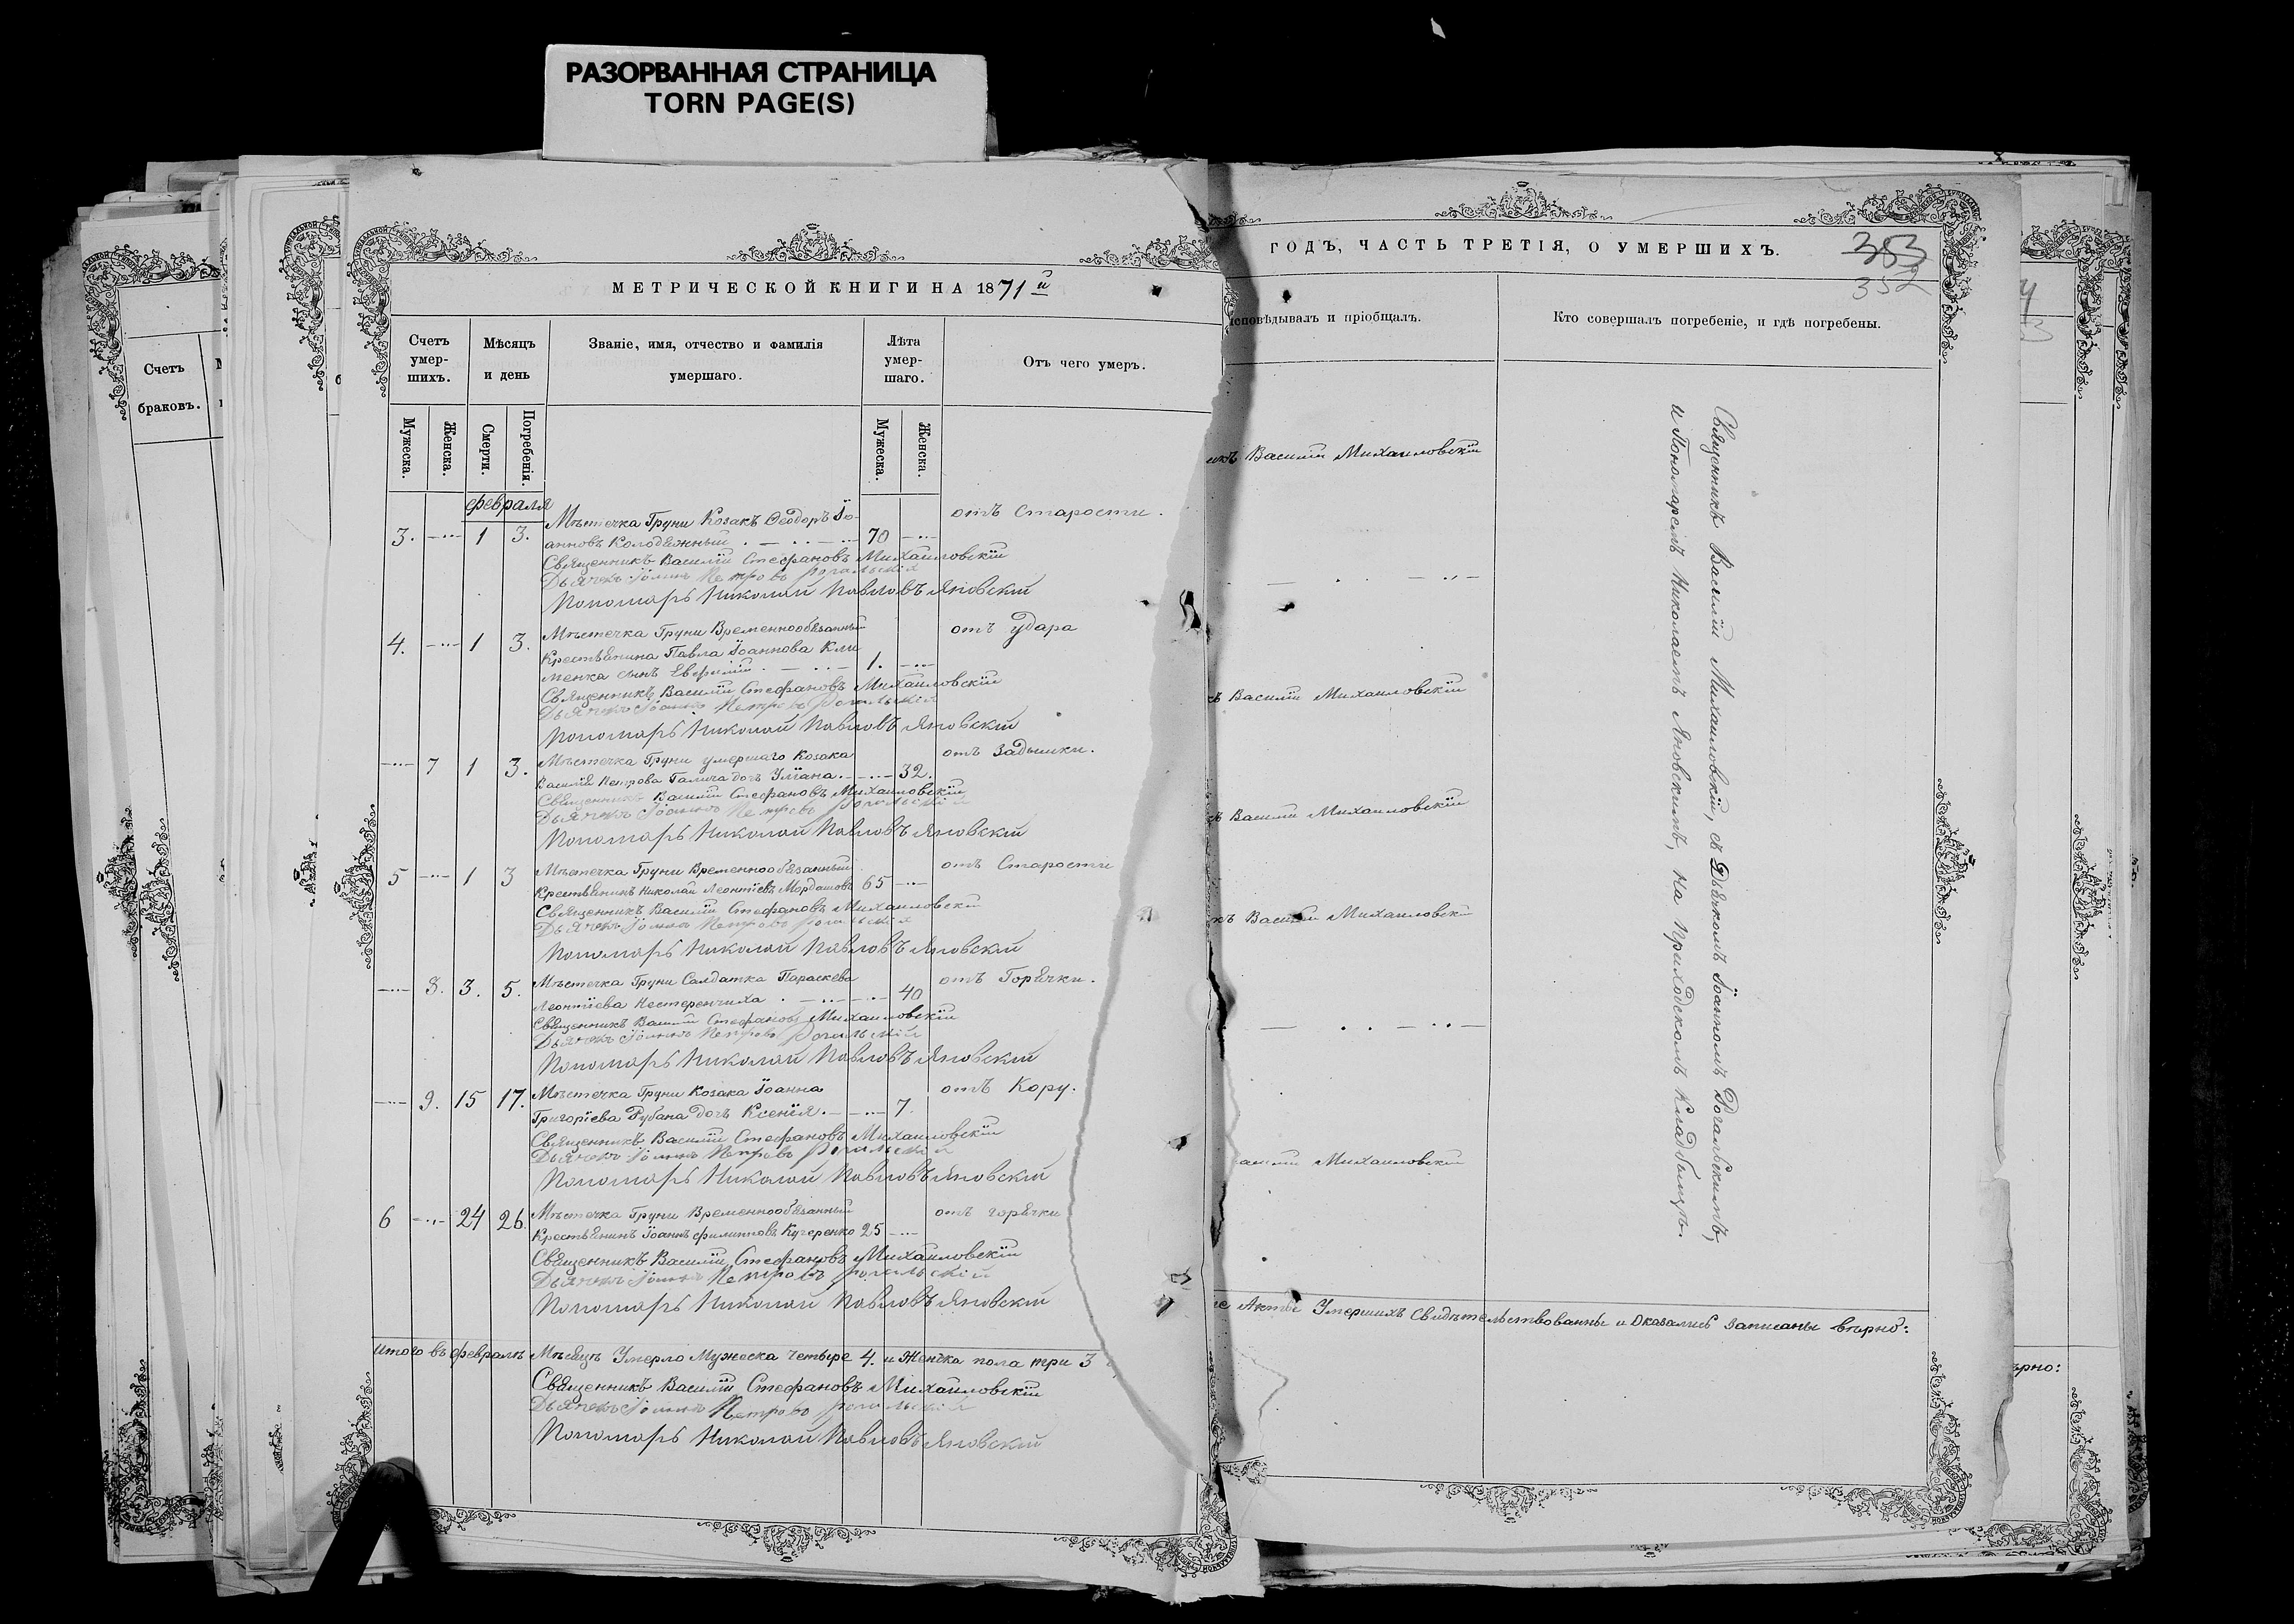 РАЗОРВАННАЯ СТРАНИЦА
TORN PAGE(S)
МЕТРИЧЕСКОЙ КНИГИ НА 1871й
Счетъ умер-шихъ.
Мѣсяцъ и день
Званіе, имя, отчество и фамилія умершаго.
Лѣта умер-шаго.
Отъ чего умеръ.
Мужеска.
Женска.
Смерти.
Погребенія.
Мужеска.
Женска.
февраля
Мѣстечка Груни Козакъ Ѳеодоръ Іо- отъ Старости.
3. 1 3. анновъ Колодяжный 70
Священникъ Василій Стефановъ Михайловскій
Дьячекъ Іоаннъ Петровъ Рогальскій
Пономарь Николай Павловъ Яновскій
Мѣстечка Груни Временнообязанный отъ удара
4. 1 3. Крестьянина Павла Іоаннова Кли
менка сынъ Евфимій 1.
Священникъ Василій Стефановъ Михайловскій
Дьячекъ Іоаннъ Петровъ Рогальскій
Пономарь Николай Павловъ Яновскій
7 1 3. Мѣстечка Груни умершаго Козака отъ Задышки.
Василія Петрова Галича дочь Уліана. 32.
Священникъ Василій Стефановъ Михайловскій
Дьячекъ Іоаннъ Петровъ Рогальскій
Пономарь Николай Павловъ Яновскій
5 1 3 Мѣстечка Груни Временнообязанный отъ Старости
Крестьянинъ Николай Леонтіевъ Мордашовъ 65
Священникъ Василій Стефановъ Михайловскій
Дьячекъ Іоаннъ Петровъ Рогальскій
Пономарь Николай Павловъ Яновскій
8. 3. 5. Мѣстечка Груни Салдатка Параскева отъ Горячки.
Леонтіева Нестеренчиха 40
Священникъ Василій Стефановъ Михайловскій
Дьячекъ Іоаннъ Петровъ Рогальскій
Пономарь Николай Павловъ Яновскій
9. 15 17. Мѣстечка Груни Козака Іоанна отъ Кору.
Григоріева Рубана дочь Ксенія. 7.
Священникъ Василій Стефановъ Михайловскій
Дьячекъ Іоаннъ Петровъ Рогальскій
Пономарь Николай Павловъ Яновскій
6 24 26. Мѣстечка Груни Временнообязанный отъ горячки
Крестьянинъ Іоаннъ Филипповъ Кучеренко 25
Священникъ Василій Стефановъ Михайловскій
Дьячекъ Іоаннъ Петровъ Рогальскій
Пономарь Николай Павловъ Яновскій
Итого въ февралѣ Мѣсяцѣ Умерло Мужеска четыре 4. и Женска пола три 3
Священникъ Василій Стефановъ Михайловскій
Дьячекъ Іоаннъ Петровъ Рогальскій
Пономарь Николай Павловъ Яновскій
ГОДЪ, ЧАСТЬ ТРЕТІЯ, О УМЕРШИХЪ.
353
352
исповѣдывалъ и пріобщалъ.
Кто совершалъ погребеніе, и гдѣ погребены.
икъ Василій Михайловскій
ъ Василій Михайловскій
ъ Василій Михайловскій
къ Василій Михайловскій
асилій Михайловскій
Священникъ Василій Михайловскій, съ Дьячкомъ Іоанномъ Рогальскимъ,
и Пономаремъ Николаемъ Яновскимъ, на приходскомъ кладбищѣ.
Акты Умершихъ Свидѣтельствованны и Оказались Записаны вѣрно:
Счетъ
браковъ.
ѣрно: